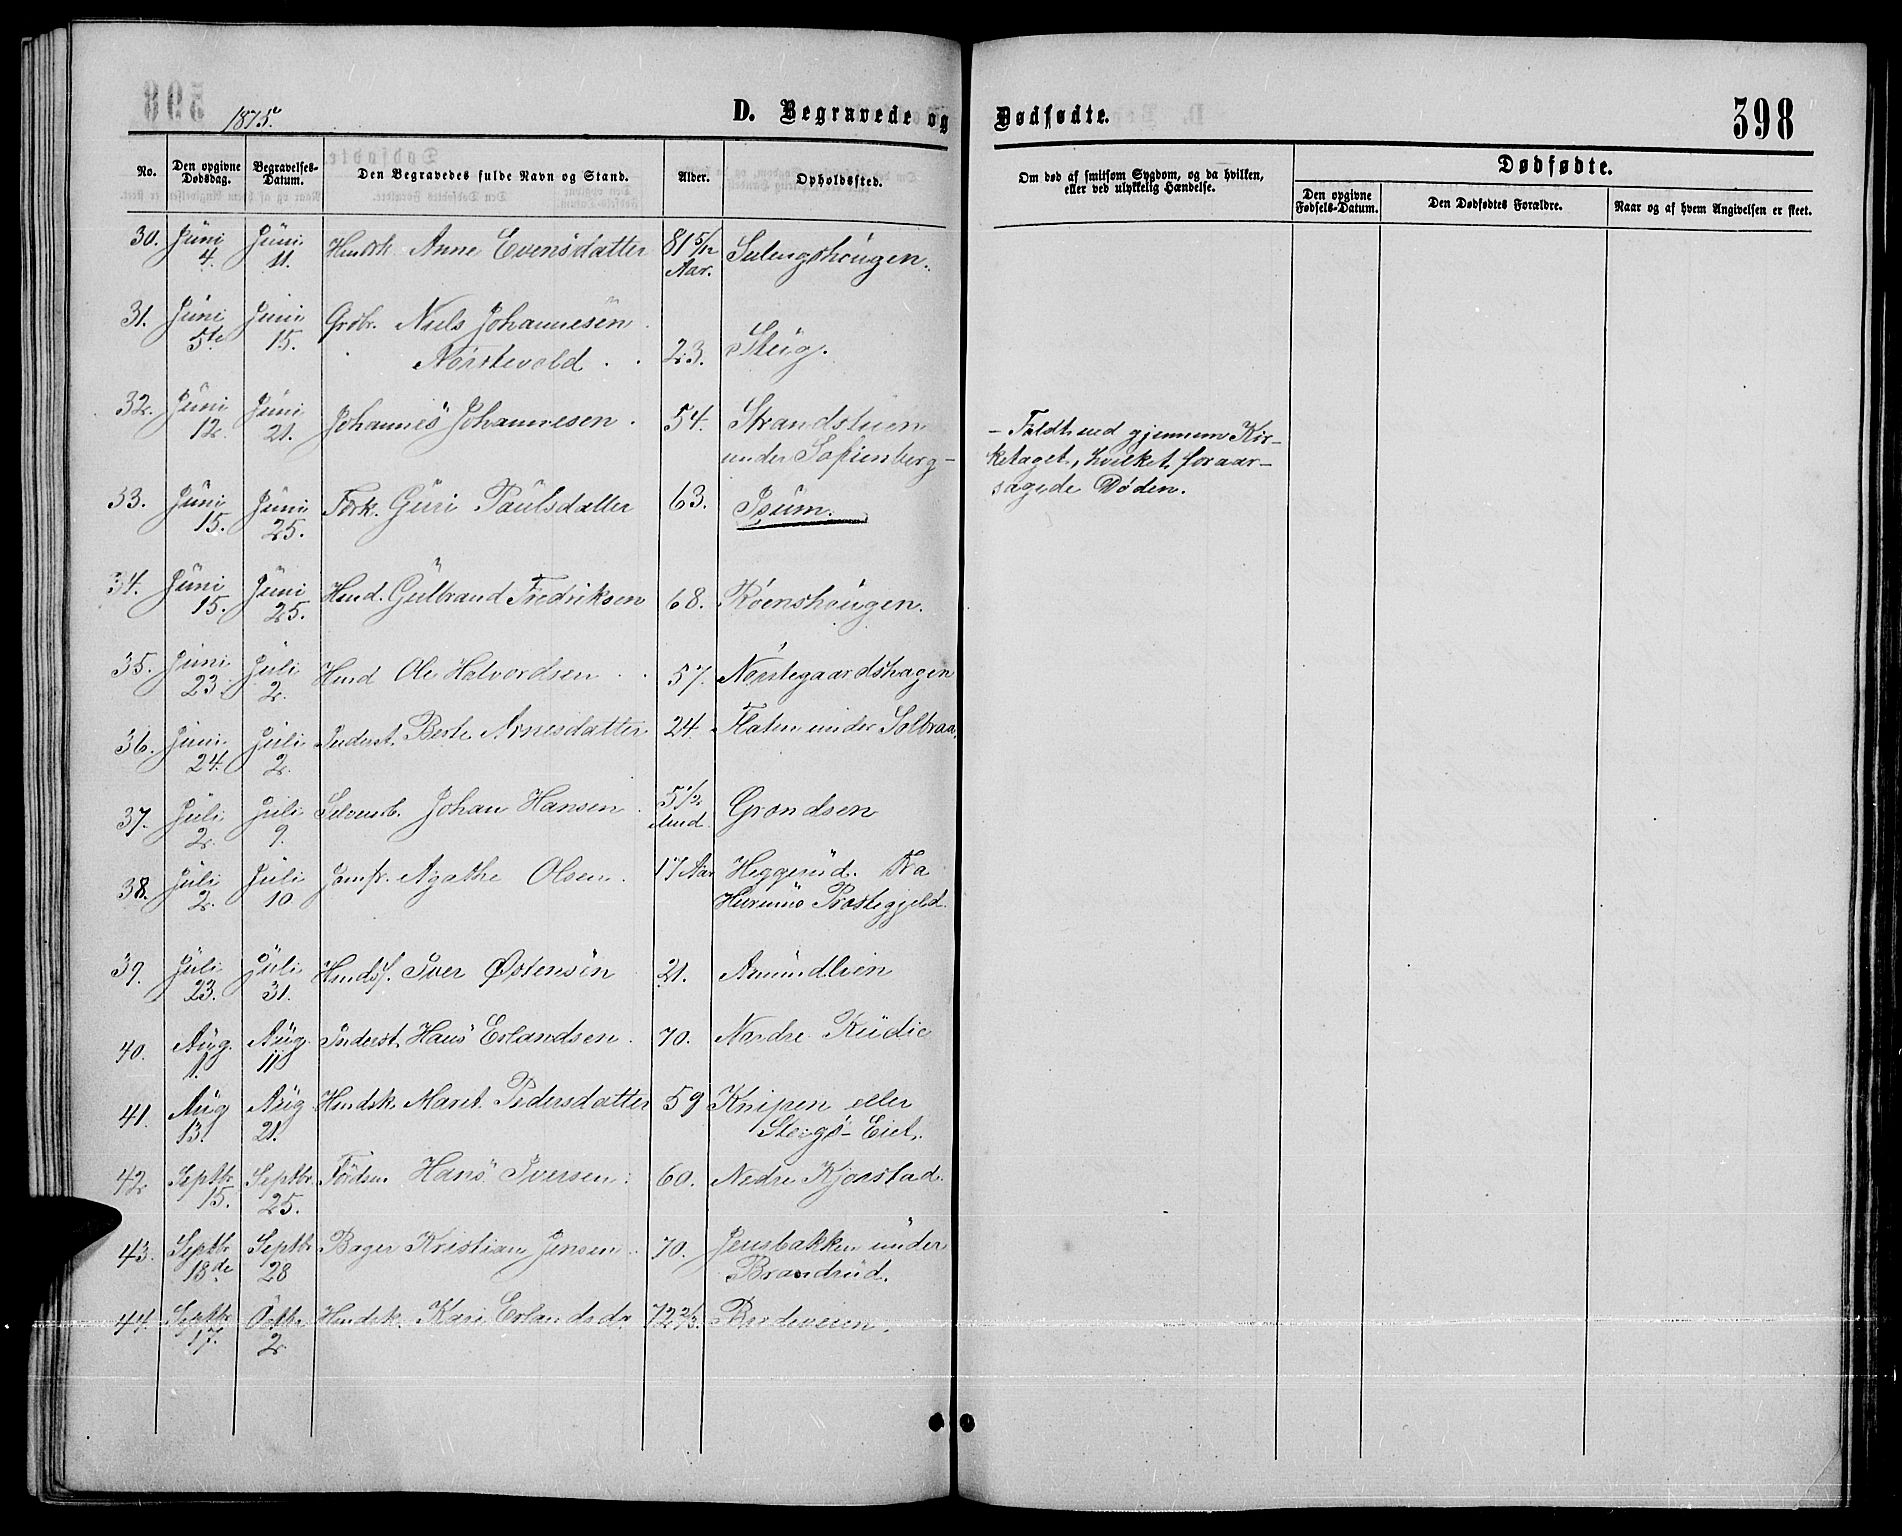 1875.
D. Begravede og Dødfødte.
398
No.
Den opgivne Dødsdag.
Begravelses-Datum.
Den Begravedes fulde Navn og Stand.
Alder.
Opholdssted.
Om død af smitsom Sygdom, og da hvilken,
eller ved ulykkelig Hændelse.
Dødfødte.
Den opgivne Fødsels-Datum.
Den Dødfødtes Forældre.
Naar og af hvem Angivelsen er skeet.
30. Juni 4. Juni 11. Anne Evensdatter 81 5/12 Aar.
31. Juni 5te Juni 15. Grdbr. Niels Johannesen
Norstevold 23. Steig.
32. Juni 12. Juni 21. Johannes Johannesen 54. Strandstuen
under Sofienberg
- Faldt ned gjennem Kir-
ketaget, hvilket foraar-
sagede Døden.
33. Juni 15. Juni 25. Guri Paulsdatter 63. Isum.
34. Juni 15. Juni 25. Husd. Gulbrand Fredriksen 68. Roenshaugen.
35. Juni 23. Juli 2. Husd Ole Halvordsen 57. Norstegaardshagen
36. Juni 24. Juli 2. Inderst. Berte Arnesdatter 24 Flaten under Solbraa.
37. Juli 2. Juli 9. Johan Hansen 5 1/2 Grondsen
38. Juli 2. Juli 10 Jomfr. Agathe Olsen. 17 Aar Heggerud. Fra
Præstegjeld.
39. Juli 23. Juli 31. Iver Østensen 21. Amundlien
40. Aug. 1. Aug. 11 Inderst. Hans Erlandsen. 70. Nordre
41. Aug 13. Aug 21. Husdsk. Marit Pedersdatter 59 Knipen eller
Steigs-Eiet.
42. Septbr. 15. Septbr 25. Hans Iversen. 60. Nedre Kjorstad.
43. Septbr. 18de Septbr 28 Bager Kristian Jensen. 70. Jensbakken under
Brandrud.
44. Septbr 17. Octbr. 2. Kari Erlandsdr. 72